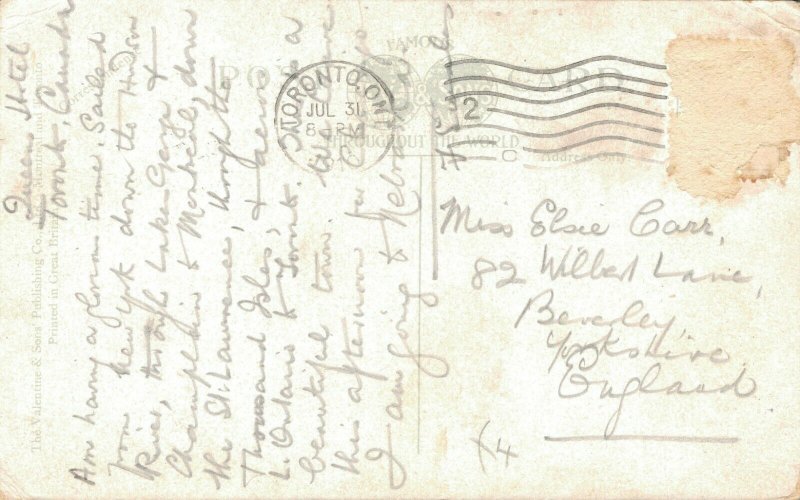 Queens Hotel
Toronto, Canada
Am having a glorious time. Sailed
from New York down the Hudson
River, through Lake George &
Champlain to Montreal, down
the St. Lawrence, through the
Thousand Isles, & across
L. Ontario to Toronto. This is a
beautiful town. We leave
this afternoon for
I am going to Nebraska
POST CARD
FAMOUS
THROUGHOUT THE WORLD
Address Only
TORONTO, ONT
JUL 31
8 PM
2
C
Miss Elsie Carr,
82 Wilbert Lane,
Beverley,
Yorkshire
England
4
The Valentine & Sons' Publishing Co. Montreal and Toronto
Printed in Great Britain